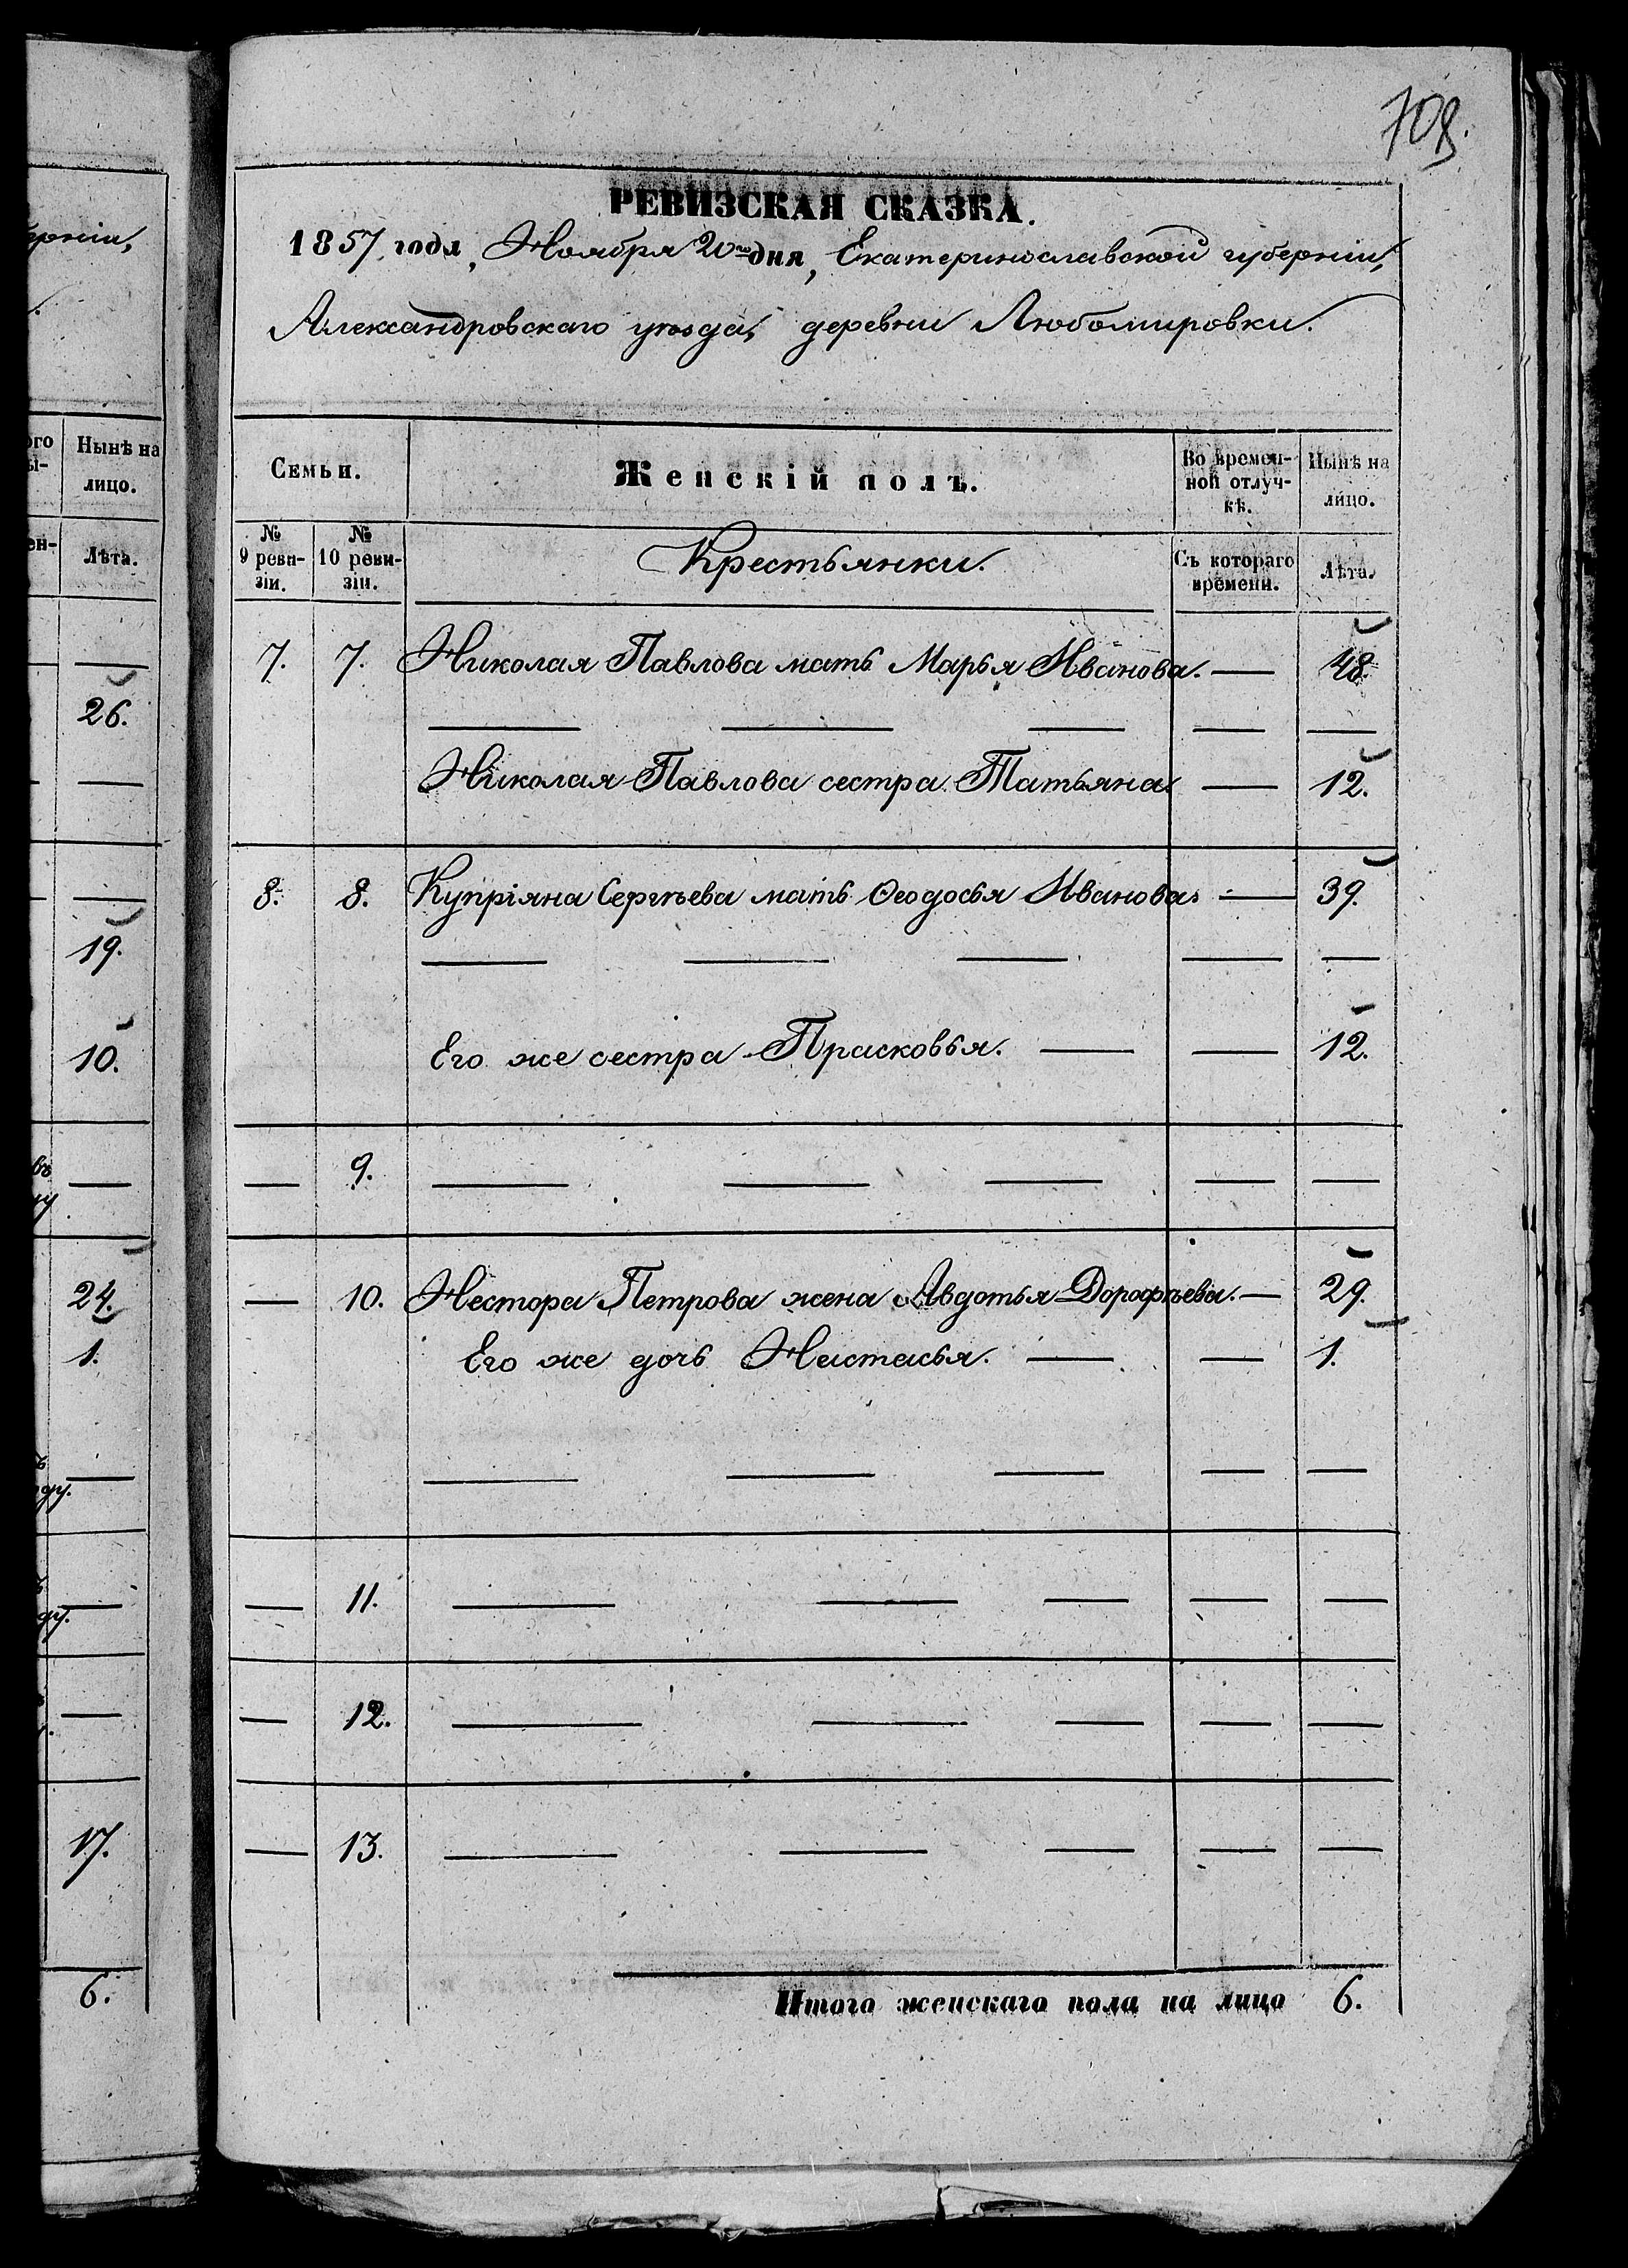 709.
РЕВИЗСКАЯ СКАЗКА.
1857 года, Ноября 20го дня, Екатеринославской губернiи,
Александровскаго уѣзда, деревни Любомировки.
Семьи.
Женскiй полъ.
Во времен-
ной отлуч-
кѣ.
Нынѣ на
лицо.
№
9 реви-
зiи.
№
10 реви-
зiи.
Крестьянки.
Съ котораго
времени.
Лѣта.
7. 7. Николая Павлова мать Марья Иванова. — 48.
— — — — —
Николая Павлова сестра Татьяна. — 12.
8. 8. Купрiяна Сергѣева мать Ѳеодосья Иванова. — 39.
— — — — —
Его же сестра Прасковья. — — 12.
— 9. — — — — —
— 10. Нестора Петрова жена Авдотья Дорофѣева. — 29.
Его же дочь Настасья. — — 1.
— — — — —
— 11. — — — — —
— 12. — — — — —
— 13. — — — — —
Итого женскаго пола на лицо 6.
Нынѣ на
лицо.
Лѣта.
—
26.
—
—
19.
10.
—
24.
1.
—
—
—
17.
6.